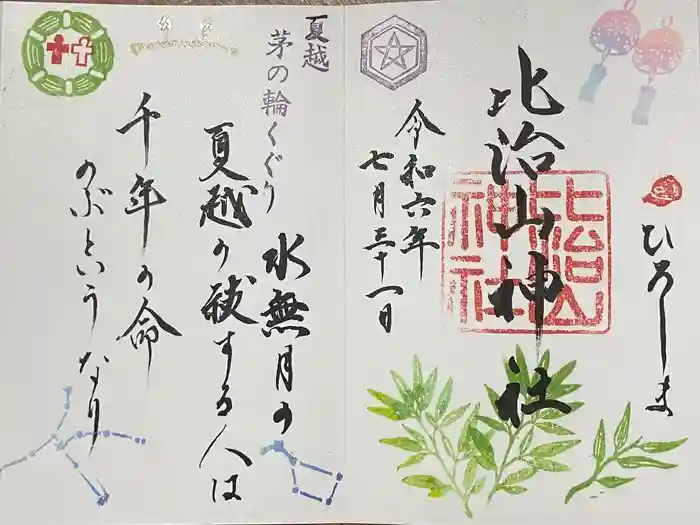 ひろしま
比治山神社
比治山神社
令和六年
七月三十一日
夏越
茅の輪くぐり
水無月の
夏越の祓する人は
千年の命
のぶというなり